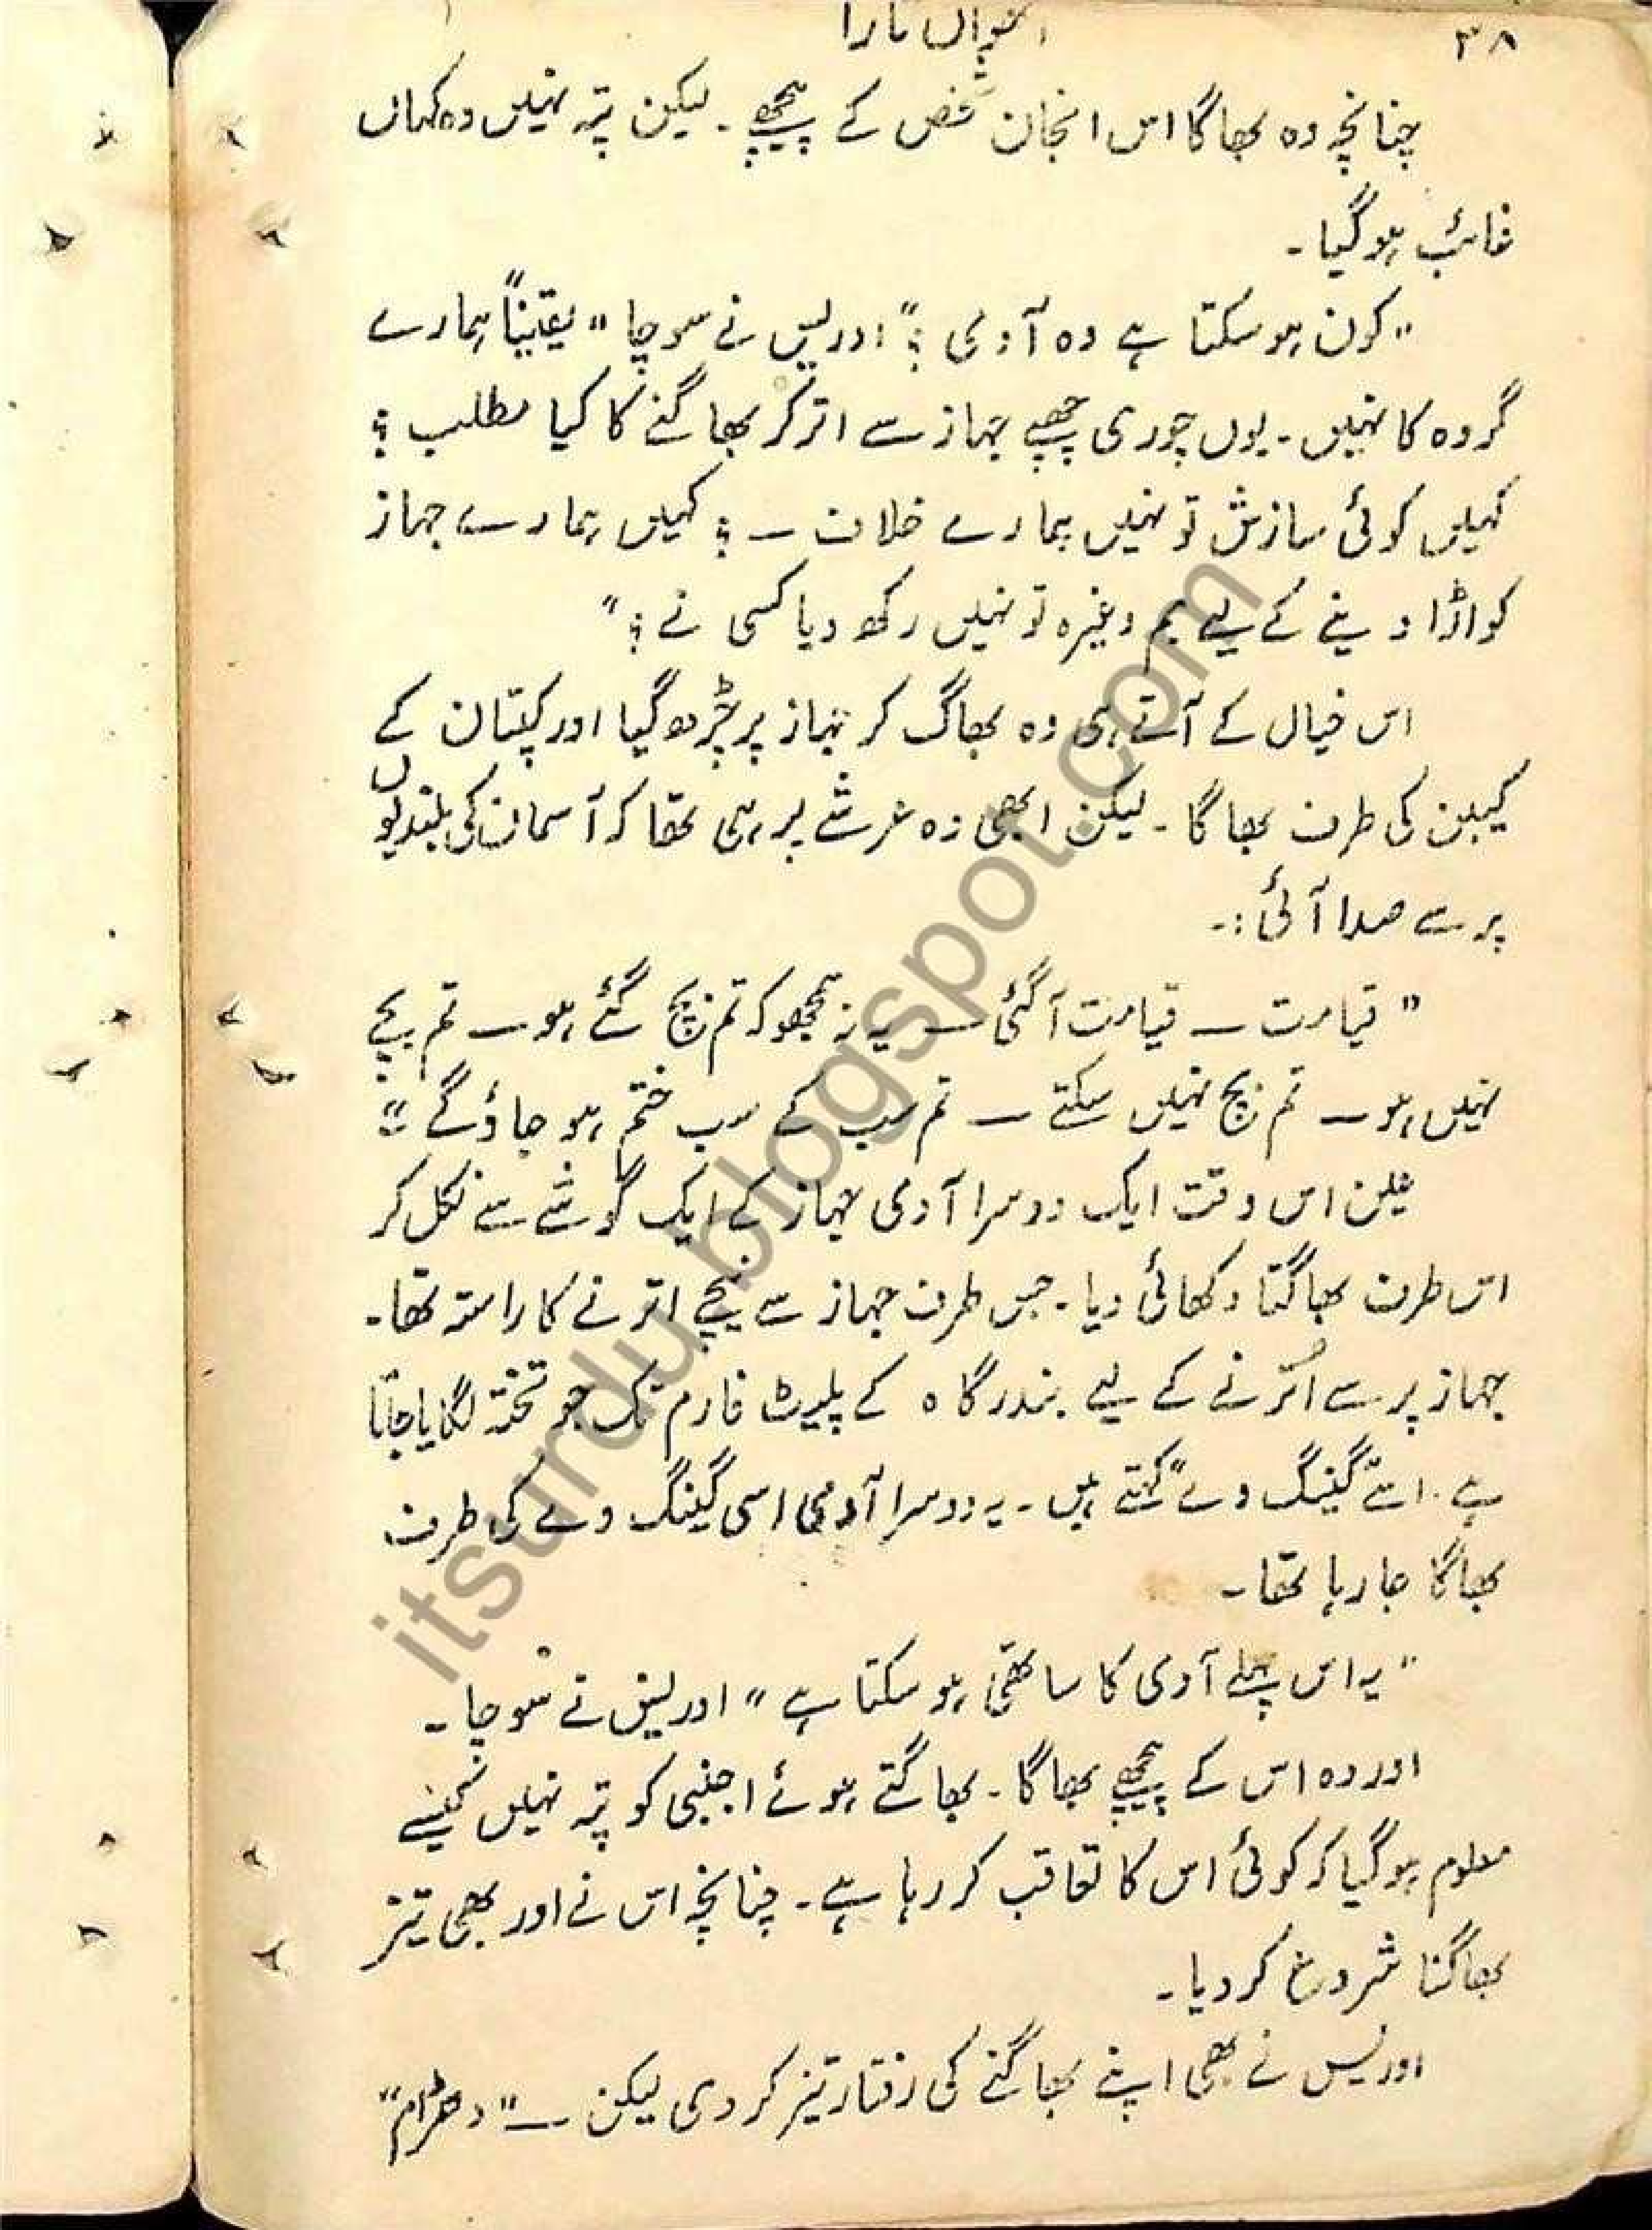 ۳۸
تارا
چنانچہ وہ بھاگا اس انجان شخص کے پیچھے ۔ لیکن پتہ نہیں وہ کہاں
غائب ہو گیا ۔
" کون ہو سکتا ہے وہ آدمی ؟" ادریس نے سوچا " یقیناً ہمارے
گروہ کا نہیں ۔ یوں چوری چھپے جہاز سے اتر کر بھاگنے کا کیا مطلب ؟
کہیں کوئی سازش تو نہیں ہمارے خلاف ــ ؟ کہیں ہمارے جہاز
کو اڑا دینے کے لیے بم وغیرہ تو نہیں رکھ دیا کسی نے ؟ "
اس خیال کے آتے ہی وہ بھاگ کر جہاز پر چڑھ گیا اور کپتان کے
کیبن کی طرف بھاگا ۔ لیکن ابھی وہ عرشے پر ہی تھا کہ آسمان کی بلندیوں
پر سے صدا آئی :۔
" قیامت ــ قیامت آ گئی ــ یہ نہ سمجھو کہ تم بچ گئے ہو ــ تم بچے
نہیں ہو ــ تم بچ نہیں سکتے ــ تم سب کے سب ختم ہو جاؤ گے ۔"
عین اس وقت ایک دوسرا آدمی جہاز کے ایک گوشے سے نکل کر
اس طرف بھاگتا دکھائی دیا ۔ جس طرف جہاز سے نیچے اترنے کا راستہ تھا ۔
جہاز پر سے اُترنے کے لیے بندرگاہ کے پلیٹ فارم تک جو تختہ لگایا جاتا
ہے ۔ اسے "گینگ وے" کہتے ہیں ۔ یہ دوسرا آدمی اسی گینگ وے کی طرف
بھاگا جا رہا تھا ۔
" یہ اس پہلے آدمی کا ساتھی ہو سکتا ہے " ادریس نے سوچا ۔
اور وہ اس کے پیچھے بھاگا ۔ بھاگتے ہوئے اجنبی کو پتہ نہیں کیسے
معلوم ہو گیا کہ کوئی اس کا تعاقب کر رہا ہے ۔ چنانچہ اس نے اور بھی تیز
بھاگنا شروع کر دیا ۔
ادریس نے بھی اپنے بھاگنے کی رفتار تیز کر دی لیکن ــ " دھڑام "
itsurdu.blogspot.com